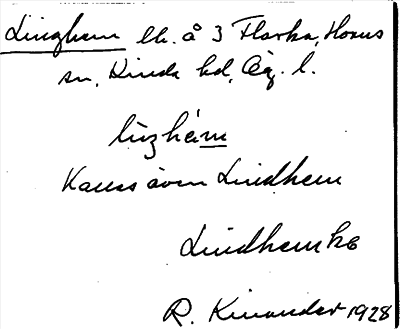 Linghem lh. å 3 Flarka, Horns
sn, Kinda hd, Ög. l.
lìŋhém
Kanss även Lindhem
Lindhem ks
R. Kinander 1928